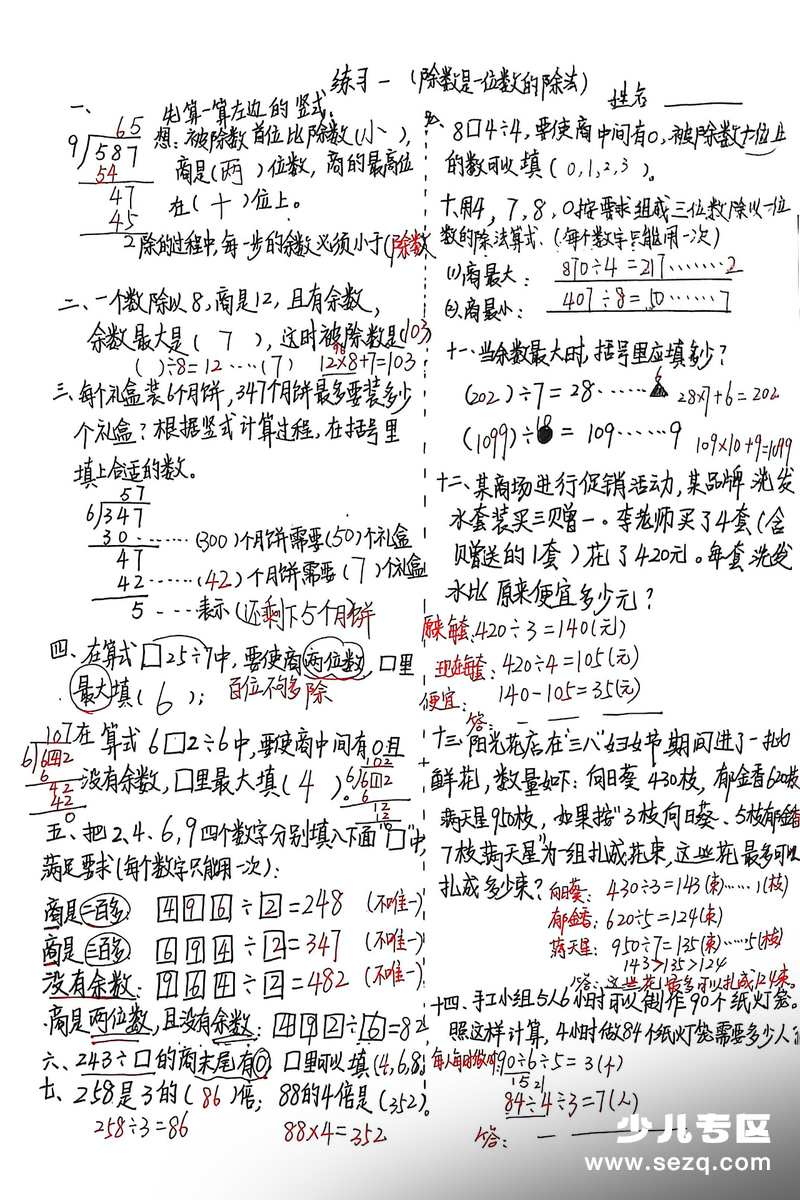 练习一（除数是一位数的除法）
姓名
一、先算一算左边的竖式。
65
9 587
54
47
45
2
想：被除数首位比除数（小），
商是（两）位数，商的最高位
在（十）位上。
除的过程中，每一步的余数必须小于（除数
二、一个数除以8，商是12，且有余数，
余数最大是（7），这时被除数是（103）
（ ）÷8=12……（7） 12×8+7=103
96
三、每个礼盒装6个月饼，347个月饼最多要装多少
个礼盒？根据竖式计算过程，在括号里
填上合适的数。
57
6 347
30……（300）个月饼需要（50）个礼盒
47
42……（42）个月饼需要（7）个礼盒
5 ---表示（还剩下5个月饼
四、在算式□25÷7中，要使商两位数，□里
最大填（6）； 百位不够除
在算式6□2÷6中，要使商中间有0且
没有余数，□里最大填（4）。
107
6 642
6
42
42
0
102
6 612
6
12
12
0
五、把2、4、6、9四个数字分别填入下面“□”中，
满足要求（每个数字只能用一次）：
商是二百多： 496÷2=248 （不唯一）
商是三百多： 694÷2=347 （不唯一）
没有余数： 964÷2=482 （不唯一）
商是两位数，且没有余数：492÷6=82
六、243÷□的商末尾有0，□里可以填（4,6,8）
七、258是3的（86）倍；88的4倍是（352）。
258÷3=86 88×4=352
、8□4÷4，要使商中间有0，被除数十位上
的数可以填（0,1,2,3）。
十、用4，7，8，0按要求组成三位数除以一位
数的除法算式。（每个数字只能用一次）
(1)商最大： 870÷4=217……2
(2)商最小： 407÷8=50……7
十一、当余数最大时，括号里应填多少？
（202）÷7=28……▲ 28×7+6=202
6
（1099）÷●=109……9 109×10+9=1099
10
十二、某商场进行促销活动，某品牌洗发
水套装买三赠一。李老师买了4套（含
赠送的1套）花了420元。每套洗发
水比原来便宜多少元？
原来每套：420÷3=140（元）
现在每套：420÷4=105（元）
便宜： 140-105=35（元）
答：
十三、阳光花店在“三八”妇女节期间进了一批
鲜花，数量如下：向日葵430枝，郁金香620枝
满天星950枝，如果按“3枝向日葵、5枝郁金香
7枝满天星”为一组扎成花束，这些花最多可以
扎成多少束？ 向日葵： 430÷3=143（束）……1（枝）
郁金香： 620÷5=124（束）
满天星： 950÷7=135（束）……5（枝）
143>135>124
答：这些花最多可以扎成124束。
十四、手工小组5人6小时可以制作90个纸灯笼。
照这样计算，4小时做84个纸灯笼需要多少人
每人每时做的：90÷6÷5=3（个）
15
21
84÷4÷3=7（人）
答：
少儿专区
www.sezq.com